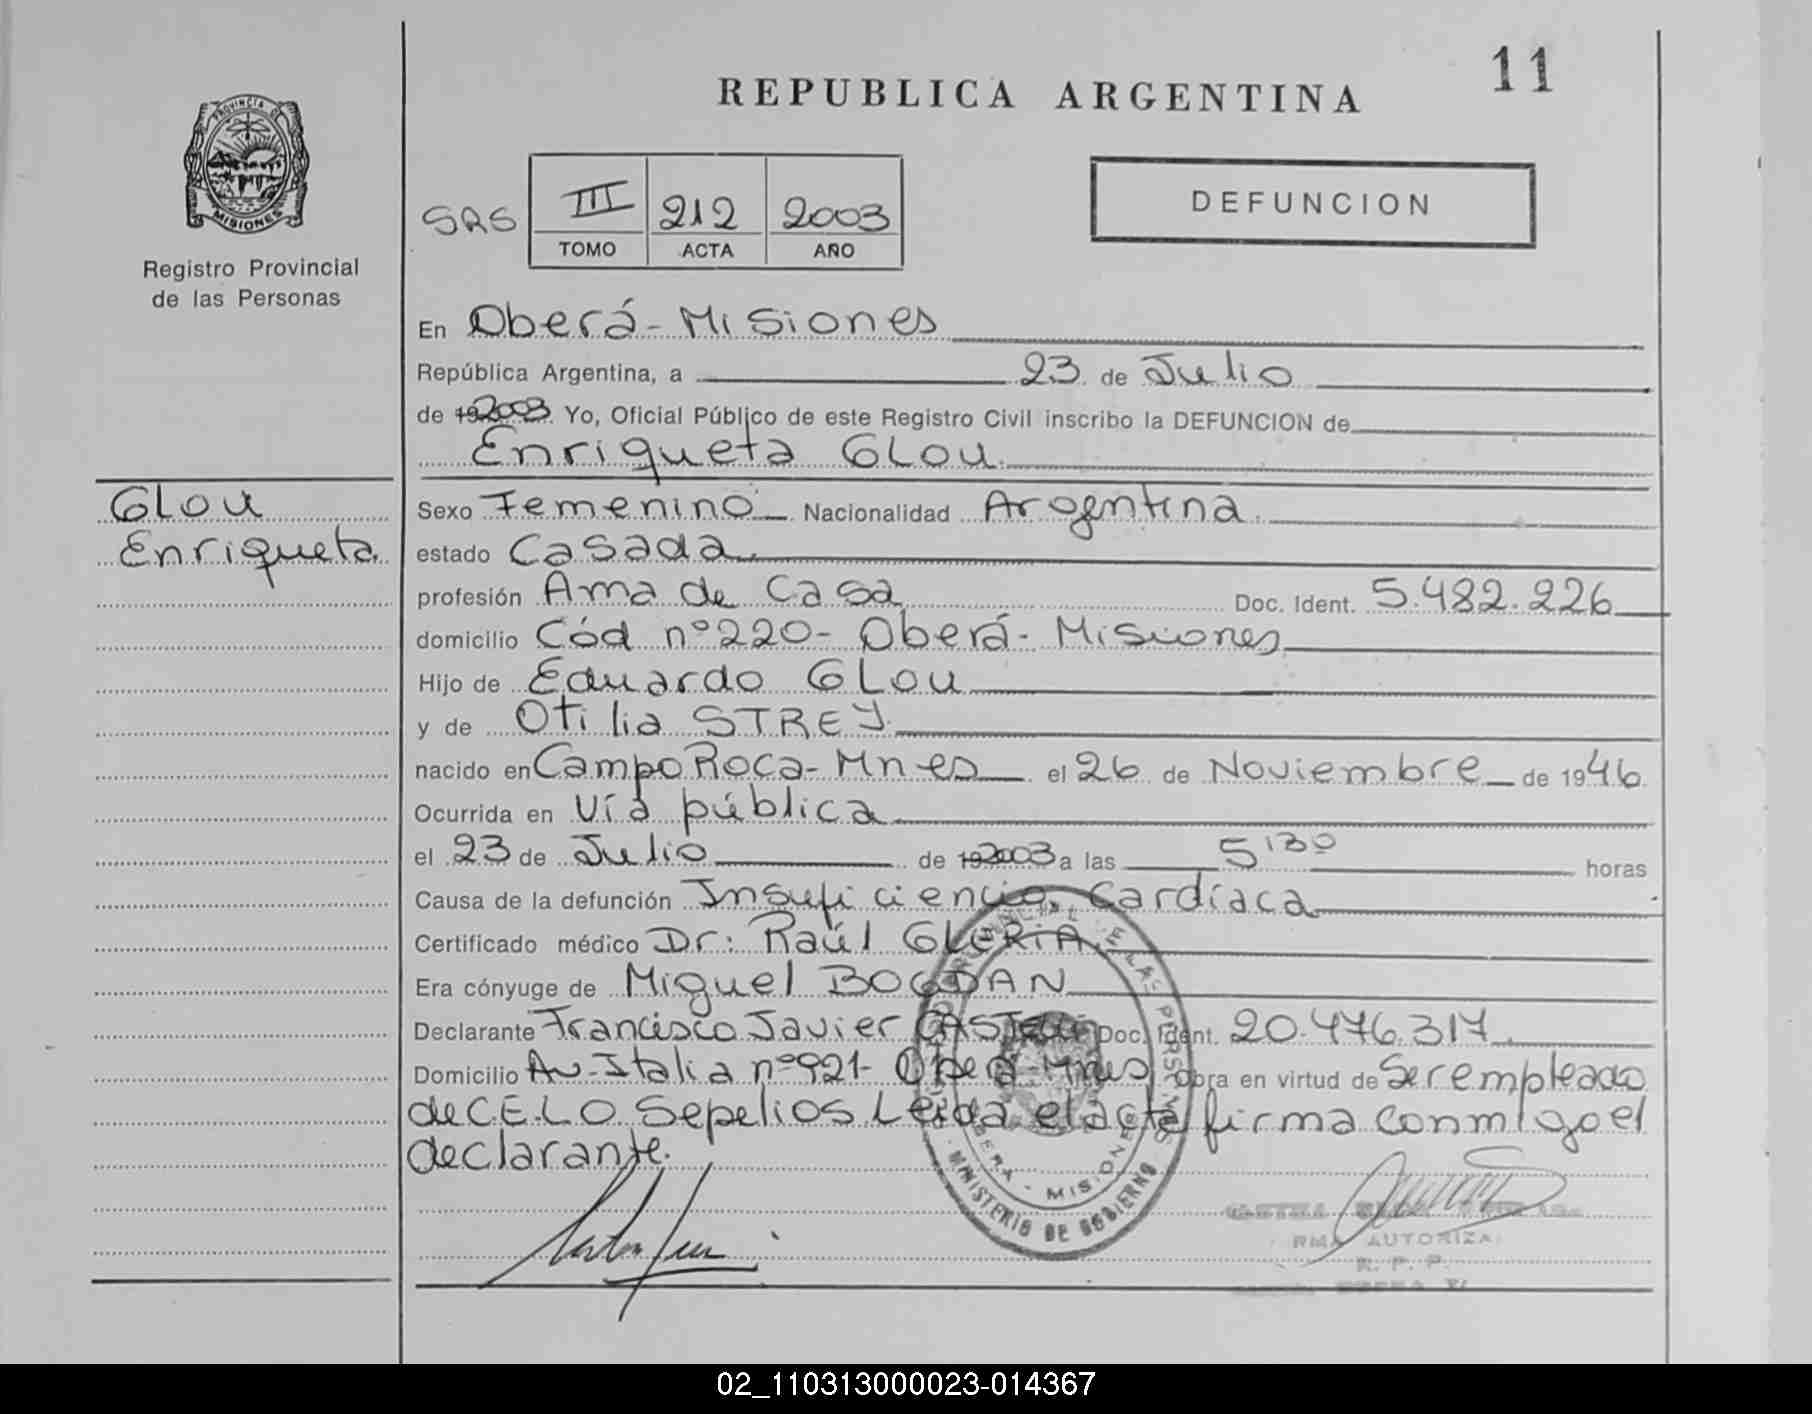 11
REPUBLICA ARGENTINA
PROVINCIA DE
MISIONES
Registro Provincial
de las Personas
SRS
III 212 2003
TOMO ACTA AÑO
DEFUNCION
En Oberá - Misiones
República Argentina, a 23 de Julio
de 192003 Yo, Oficial Público de este Registro Civil inscribo la DEFUNCION de
Enriqueta GLOU
GLOU
Enriqueta
Sexo Femenino Nacionalidad Argentina
estado Casada
profesión Ama de Casa Doc. Ident. 5.482.226
domicilio Cód nº 220 - Oberá - Misiones
Hijo de Eduardo GLOU
y de Otilia STREY
nacido en Campo Roca - Mnes el 26 de Noviembre de 1946
Ocurrida en Vía pública
el 23 de Julio de 192003 a las 5:30 horas
Causa de la defunción Insuficiencia Cardíaca
Certificado médico Dr: Raúl GLERIA
Era cónyuge de Miguel BOGDAN
Declarante Francisco Javier Doc. Ident. 20.476.317
Domicilio Av. Italia nº 921 - Oberá Mnes Obra en virtud de Ser empleado
de C.E.L.O Sepelios. Leida el acta firma conmigo el
declarante.
LAS PERSONAS
OBERA - MISIONES
MINISTERIO DE GOBIERNO
AUTORIZA
R. P. P.
02_110313000023-014367